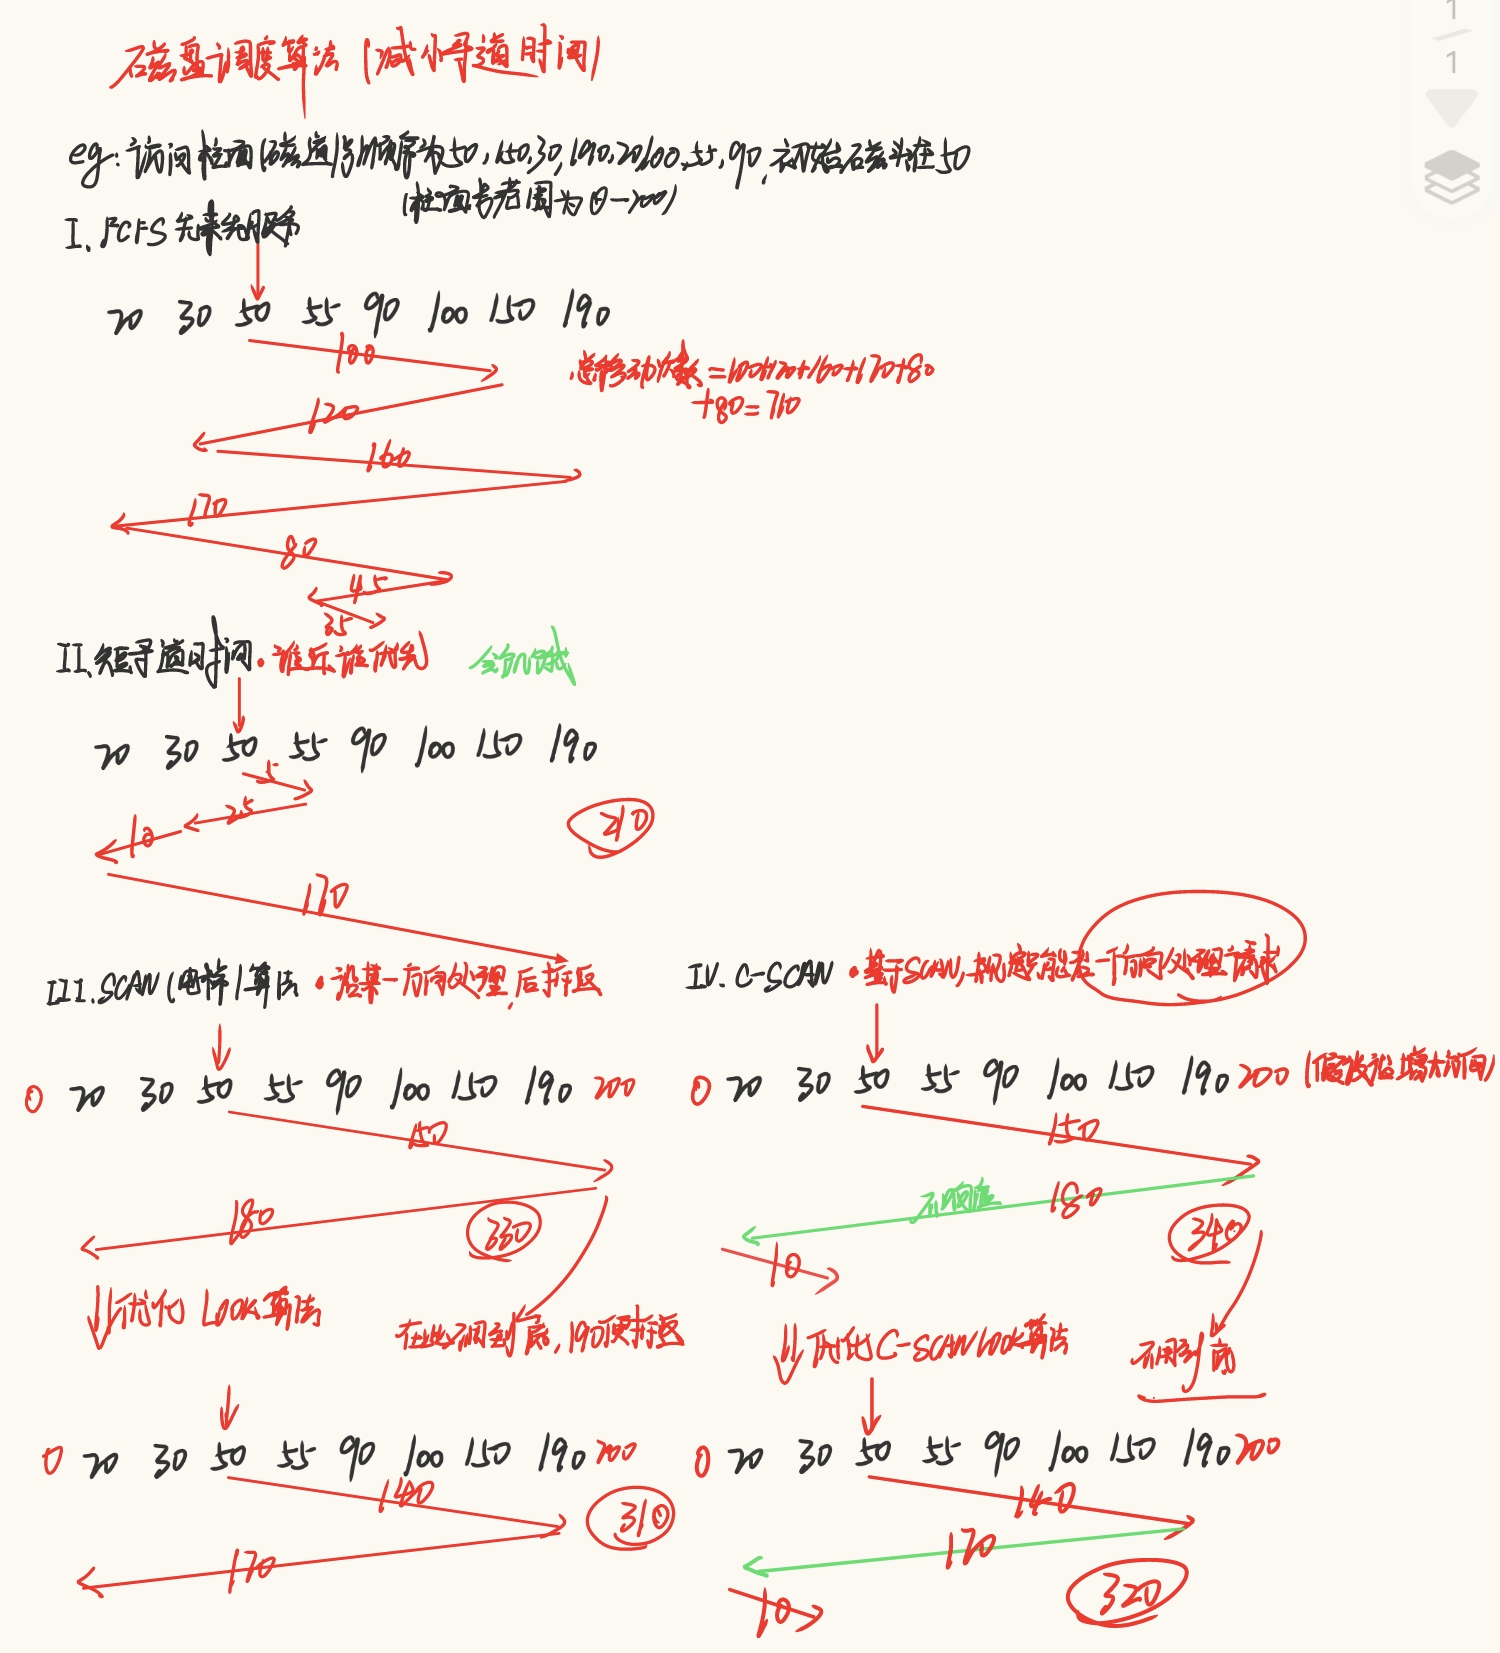 1
1
磁盘调度算法(减小寻道时间)
eg:访问柱面(磁道)号顺序为50,150,30,190,20,100,55,90,初始磁头在50
(柱面号范围为0-200)
I.FCFS先来先服务
20 30 50 55 90 100 150 190
100
总移动次数=100+120+160+170+80
+80=710
120
160
170
80
45
35
II.短寻道时间·谁近谁优先
会饥饿
20 30 50 55 90 100 150 190
5
25
10
210
170
III.SCAN(电梯)算法·沿某一方向处理,后折返
0 20 30 50 55 90 100 150 190 200
150
180
330
↓优化 LOOK算法
在此不用到底,190便折返
0 20 30 50 55 90 100 150 190 200
140
310
170
IV.C-SCAN·基于SCAN,规定只能在一个方向处理请求
0 20 30 50 55 90 100 150 190 200(假设沿增大方向)
150
不响应
180
340
10
↓优化C-SCAN LOOK算法
不用到底
0 20 30 50 55 90 100 150 190 200
140
170
320
10